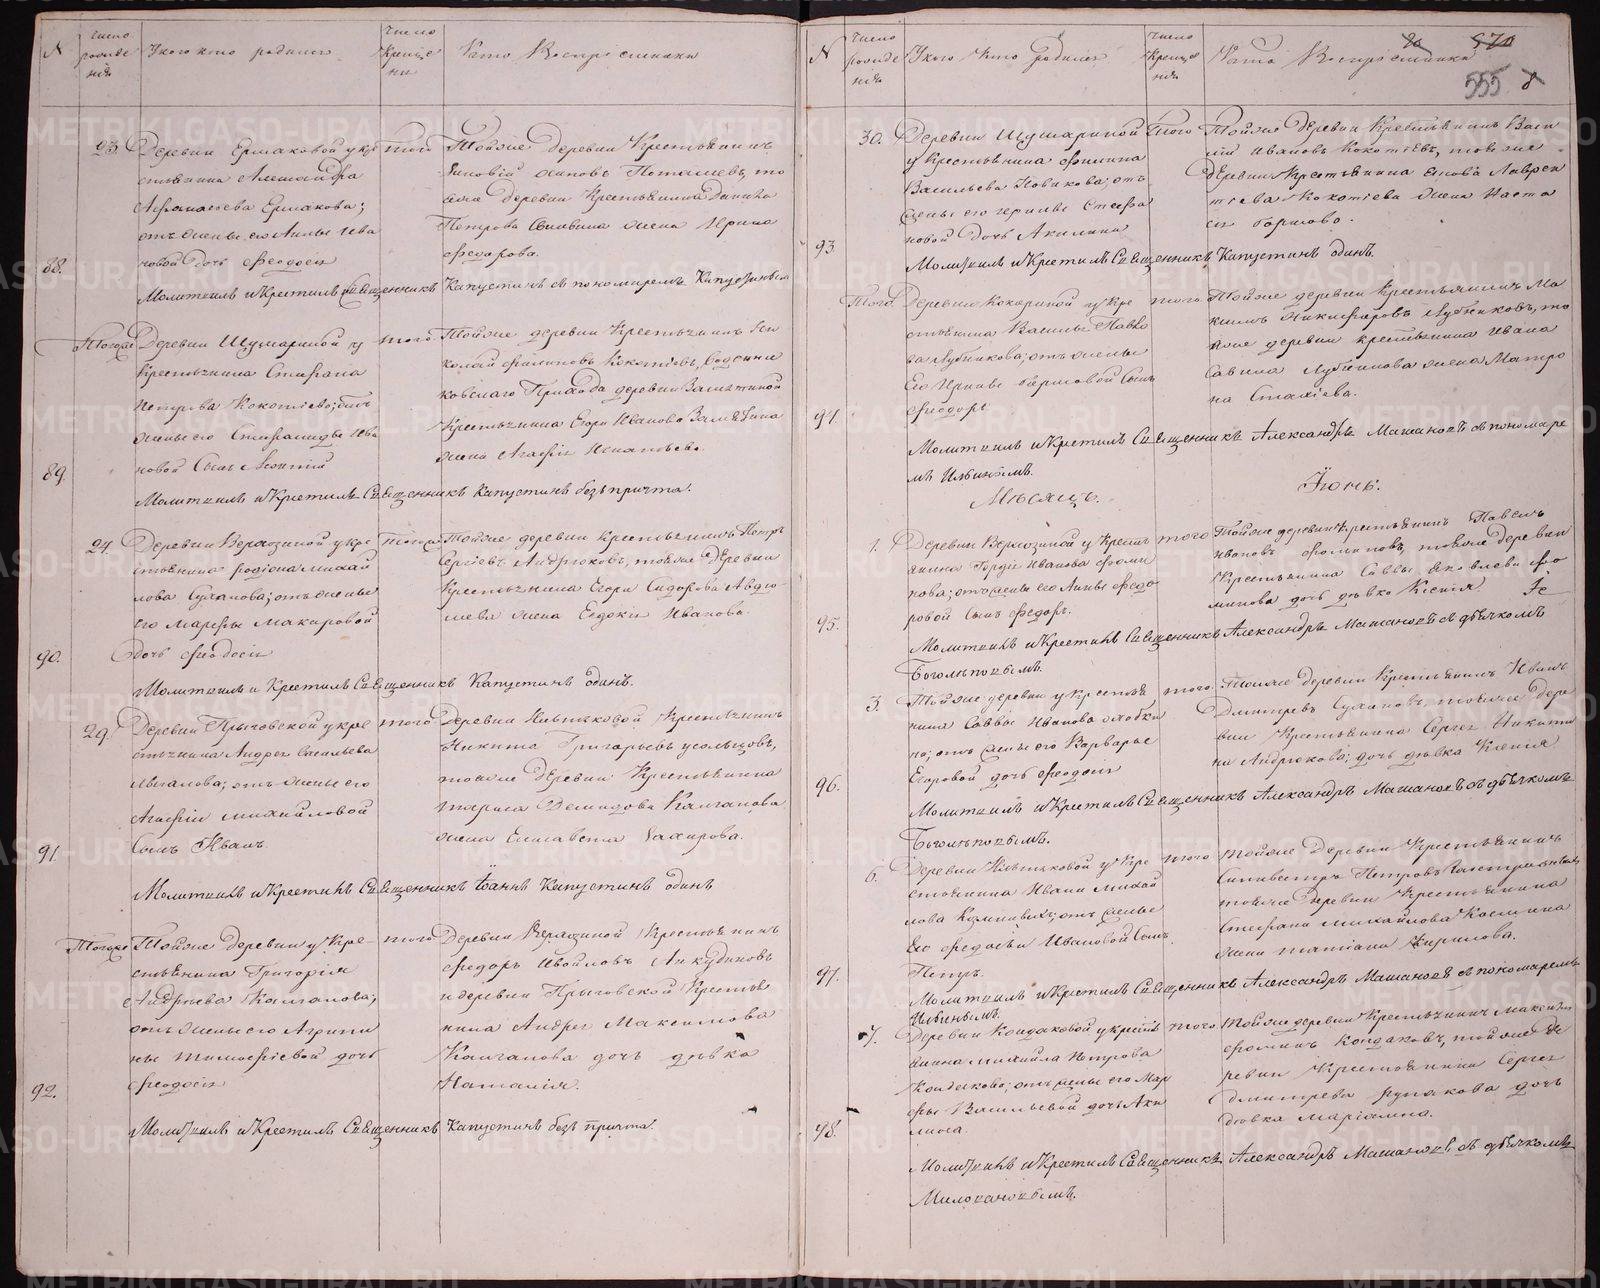 N
число рождения
У кого кто родился
число крещени
Кто Восприемники
23.
Деревни Ермаковой у кре
стьянина Александра
Афанасьева Ермакова;
отъ жены его Анны Ива
новой дочь Феодосия
того
Тойже деревни Крестьянинъ
Осиповъ Поташевъ, то
яже деревни Крестьянина Данила
Петрова жена Ирина
Федорова.
88.
Молитвилъ и Крестилъ Священникъ Капустинъ съ пономаремъ Капустинымъ
Тогоже
Деревни Шумариной у
Крестьянина Стефана
Петрова Кокотеева; отъ
жены его Степаниды Ива
новой Сынъ Леонтий
того
Тойже деревни Крестьянинъ Ни
колай Филиповъ Кокотеевъ,
ковскаго Прихода деревни Замятиной
Крестьянина Егора Иванова Замятина
жена Агафья Игнатьева.
89.
Молитвилъ и Крестилъ Священникъ Капустинъ безъ причта.
24.
Деревни Верхозиной у кре
стьянина Родиона Михай
лова Суханова; отъ жены
его Марфы Макаровой
дочь Феодосия
того
Тойже деревни Крестьянинъ Петръ
Сергѣевъ Андрюковъ, тояже деревни
Крестьянина Егора Сидорова Авдю
шева жена Евдокия Иванова.
90.
Молитвилъ и Крестилъ Священникъ Капустинъ одинъ.
29.
Деревни Прыговской у кре
стьянина Андрея Васильева
отъ жены его
Агафьи Михайловой
Сынъ Иванъ.
того
Деревни Ключиковой Крестьянинъ
Никита Григорьевъ
тояже деревни Крестьянина
Тараса Демидова Калганова
жена Елисавета Захарова.
91.
Молитвилъ и Крестилъ Священникъ Iоаннъ Капустинъ одинъ
Тогоже
Тойже деревни у Кре-
стьянина Григорiя
Андреева Калганова;
отъ жены его Агрипи
ны Тимофеевой дочь
Феодосия
того
Деревни Верхозиной Крестьянинъ
Федоръ Анкудиновъ
и деревни Прыговской Крестья
нина Андрея Максимова
Калганова дочь дѣвка
Наталiя.
92.
Молитвилъ и Крестилъ Священникъ Капустинъ безъ причта.
N
число рождения
У кого кто родился
число крещения
Кто Восприемники
570
555
8
30.
Деревни Шумариной
у крестьянина Филипа
Васильева Новикова; отъ
жены его Ирины Стефа
новой дочь Акилина
того
Тойже деревни Крестьянинъ Васи
лий Ивановъ Кокотеевъ, тояже
деревни Крестьянина Лаврен
тьева Кокотеева жена Наста
сья
93
Молитвилъ и Крестилъ Священникъ Капустинъ одинъ.
Того.
Деревни Кокариной у Кре
стьянина Василья Павло
ва Лубникова; отъ жены
Его Ирины Сынъ
Феодоръ
того.
Тойже деревни Крестьянинъ Ма
ксимъ Никифоровъ Лубниковъ, то
яже деревни крестьянина Ивана
Савина Лубникова жена Матро
на
94.
Молитвилъ и Крестилъ Священникъ Александръ Машановъ съ пономаре
мъ Ильинымъ.
Мѣсяцъ. Июнь.
1.
Деревни Верхозиной у крестьянина
Гордея Иванова Фоми
нова; отъ жены его Анны Федо
ровой Сынъ Федоръ.
того
Тойже деревни крестьянинъ Павелъ
Ивановъ Фоминовъ, тояже деревни
Крестьянина Саввы Яковлева Фо
минова дочь дѣвка Ксения
95.
Молитвилъ и Крестилъ Священникъ Александръ Машановъ съ дьячкомъ
Боголѣповымъ.
3.
Тойже деревни у крестья
нина Саввы Иванова
отъ жены его Варвары
Егоровой дочь Феодосия
того.
Тойже деревни Крестьянинъ Иванъ
Дмитревъ Сухановъ, тояже дере
вни Крестьянина Сергея Никити
на Андрюкова; дочь дѣвка Ксения
96.
Молитвилъ и Крестилъ Священникъ Александръ Машановъ съ дьячкомъ
Боголѣповымъ.
6.
Деревни Ключиковой у Кре
стьянина Ивана Михай
лова отъ жены
Его Федосьи Ивановой Сынъ
Петръ.
того
Тойже деревни Крестьянинъ
Силивестръ Петровъ
тояже деревни Крестьянина
Стефана Михайлова
жена Татиана Кирилова.
97.
Молитвилъ и Крестилъ Священникъ Александръ Машановъ съ пономаремъ
Ильинымъ.
7.
Деревни Кондаковой у крестьянина
Михайла Петрова
Кондакова; отъ жены его Мар
фы Васильевой дочь Аки
лина.
того.
Тойже деревни Крестьянинъ Максимъ
Фоминъ Кондаковъ, тойже де
ревни Крестьянина Сергея
Дмитрева дочь
дѣвка Марiамна.
98.
Молитвилъ и Крестилъ Священникъ Александръ Машановъ съ дьячкомъ
Миловановымъ.